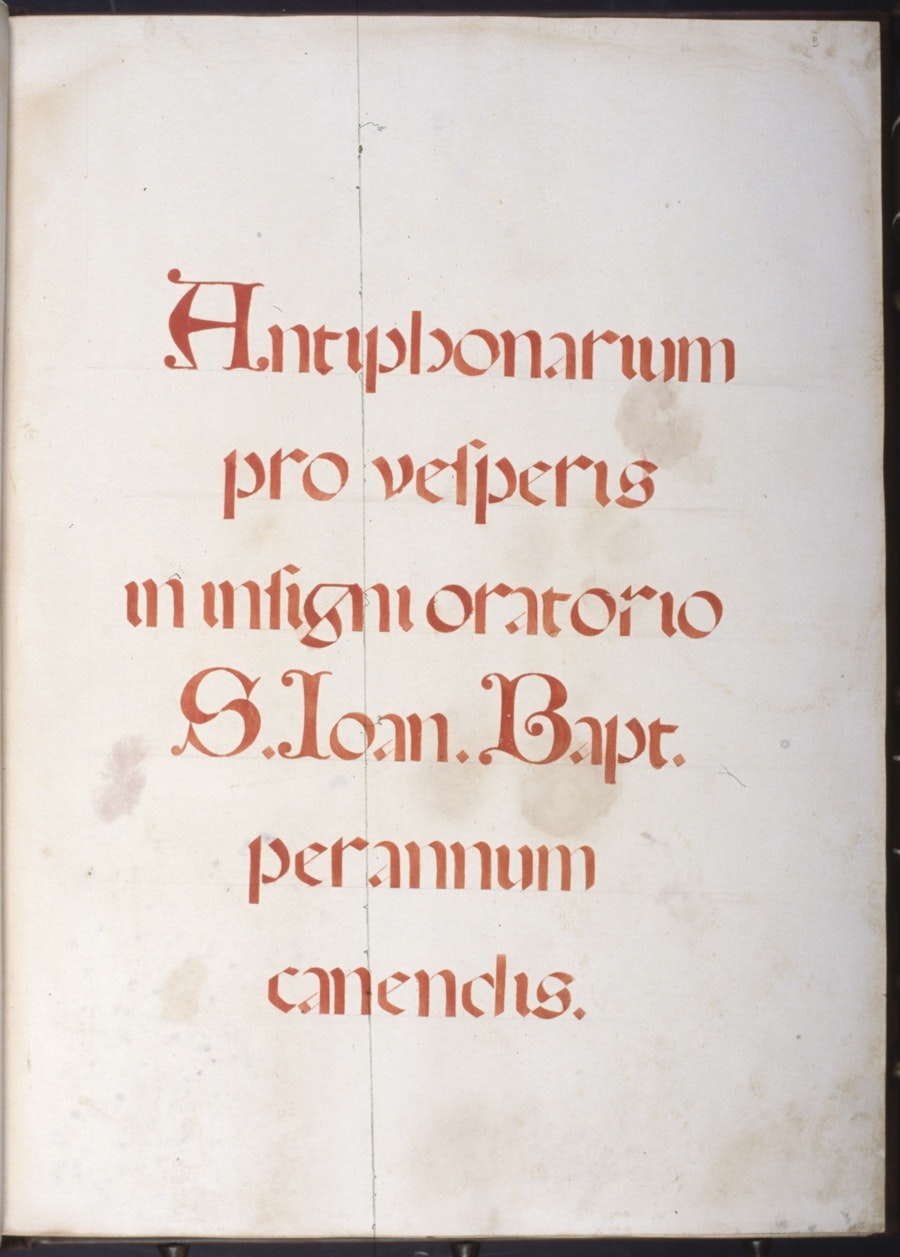 Antiphonarium
pro veſperis
in inſigni oratorio
S. Ioan. Bapt.
per annum
canendis.